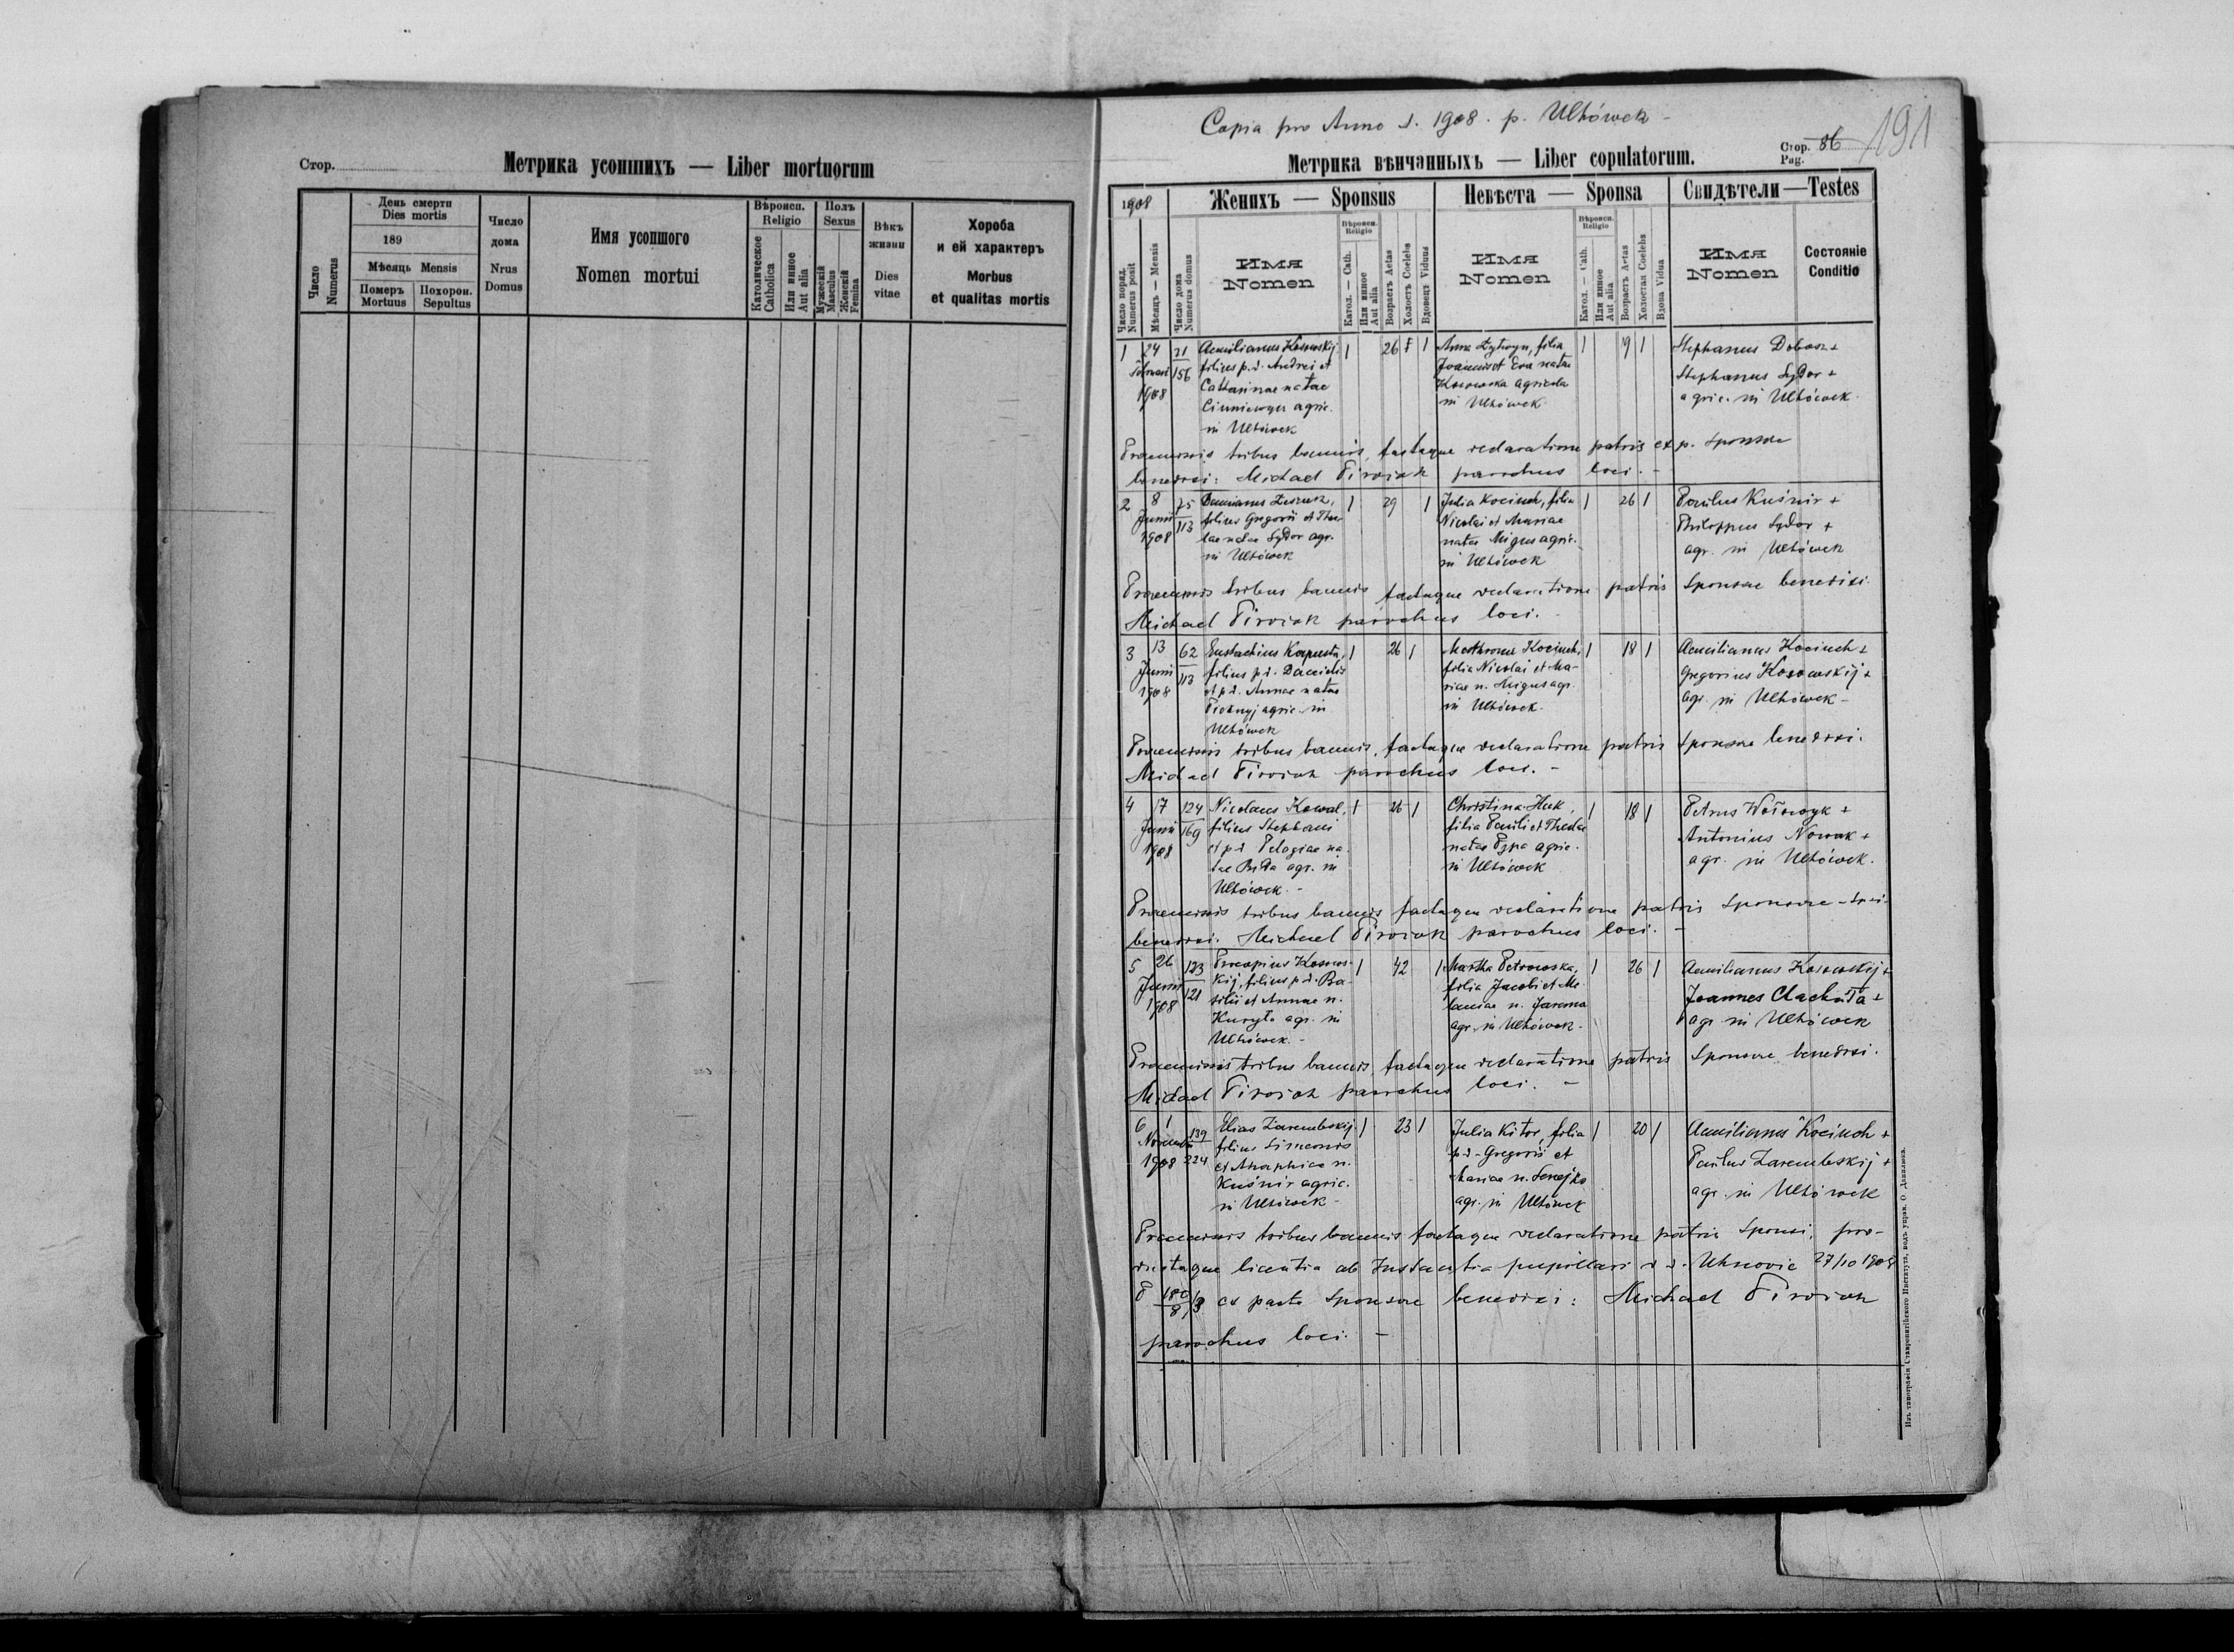 Стор.
Метрика усопшихъ — Liber mortuorum
Число
Numerus
День смерти
Dies mortis
189
Мѣсяць Mensis
Померъ
Mortuus
Похорон.
Sepultus
Число
дома
Nrus
Domus
Имя усопшого
Nomen mortui
Вѣроисп.
Religio
Католическое
Catholica
Или инное
Aut alia
Полъ
Sexus
Мужескій
Masculus
Женскій
Femina
Вѣкъ
жизни
Dies
vitae
Хороба
и ей характеръ
Morbus
et qualitas mortis
Copia pro Anno d. 1908. p. Uhówek -
191
Стор. 86
Pag.
Метрика вѣнчанныхъ — Liber copulatorum.
1908
Число поряд.
Numerus posit
Мѣсяць — Mensis
Число дома
Numerus domus
Женихъ — Sponsus
Имя
Nomen
Вѣроисп.
Religio
Катол. — Cath.
Или инное
Aut alia
Возрастъ Aetas
Холостъ Coelebs
Вдовецъ Viduus
Невѣста — Sponsa
Имя
Nomen
Вѣроисп.
Religio
Катол. — Cath.
Или инное
Aut alia
Возрастъ Aetas
Холостая Coelebs
Вдова Vidua
Свидѣтели — Testes
Имя
Nomen
Состояніе
Conditio
1
24
1908
31
156
Aemilianus Kossowskij
filius p.d. Andrei et
Catharinae natae
agric.
in Uhówek
1
26
1
Anna filia
Joannis et Eva natae
Kossowska agricola
in Uhówek
1
19 1
Stephanus +
Stephanus Sydor +
agric. in Uhówek.
Praemissis tribus bannis, factaque declaratione patris et p. Sponsae
benedixi: Michael Pirożak parochus loci. -
2
8
Junii
1908
75
113
Damianus
filius Gregorii et The-
lae natae Sydor agr.
in Uhówek
1
29
1
Julia Kociuch, filia
Nicolai et Mariae
natae Migus agric.
in Uhówek
1
26 1
Paulus Kuśnir +
Philippus Sydor +
agr. in Uhówek
Praemissis tribus bannis factaque declaratione patris Sponsae benedixi.
Michael Pirożak parochus loci. -
3
13
Junii
1908
62
113
Eustachius Kapusta,
filius p.d. Danielis
et p.d. Annae natae
agric. in
Uhówek
1
26 1
Mathrona Kociuch,
filia Nicolai et Ma-
riae n. Migus agr.
in Uhówek.
1
18 1
Aemilianus Kociuch +
Gregorius Kossowskij +
agr. in Uhówek -
Praemissis tribus bannis, factaque declaratione patris Sponsae benedixi.
Michael Pirożak parochus loci. -
4
17
Junii
1908
124
169
Nicolaus Kowal,
filius Stephani
et p.d. Pelagiae na-
tae agr. in
Uhówek. -
1
26 1
Christina Huk,
filia Pauli et Theclae
natae agric.
in Uhówek
1
18 1
Petrus +
Antonius Nowak +
agr. in Uhówek.
Praemissis tribus bannis factaque declaratione patris Sponsae
benedixi. Michael Pirożak parochus loci. -
5
26
Junii
1908
123
121
Procopius Kossows-
kij, filius p.d. Ba-
silii et Annae n.
Kuryło agr. in
Uhówek. -
1
42
1
Martha Petrowska,
filia Jacobi et Me-
laniae n. Jarema
agr. in Uhówek.
1
26 1
Aemilianus Kossowskij +
Joannes +
agr. in Uhówek
Praemissis tribus bannis, factaque declaratione patris Sponsae benedixi.
Michael Pirożak parochus loci. -
6
1
Novembr.
1908
139
224
Elias Zarembskij
filius Simeonis
et n.
Kuśnir agric.
in Uhówek -
1
23 1
Julia Kitor, filia
p.d. Gregorii et
Mariae n.
agr. in Uhówek
1
20 1
Aemilianus Kociuch +
Paulus Zarembskij +
agr. in Uhówek
Praemissis tribus bannis factaque declaratione patris Sponsi, pro-
ductaque licentia ab Instantia pupillari d. d. Uhnovie 27/10 1908
P 180/8 /8 ex parte Sponsae benedixi: Michael Pirożak
parochus loci. -
Изъ типографіи Ставропигійского Института, подъ управ. О. Данилюка.